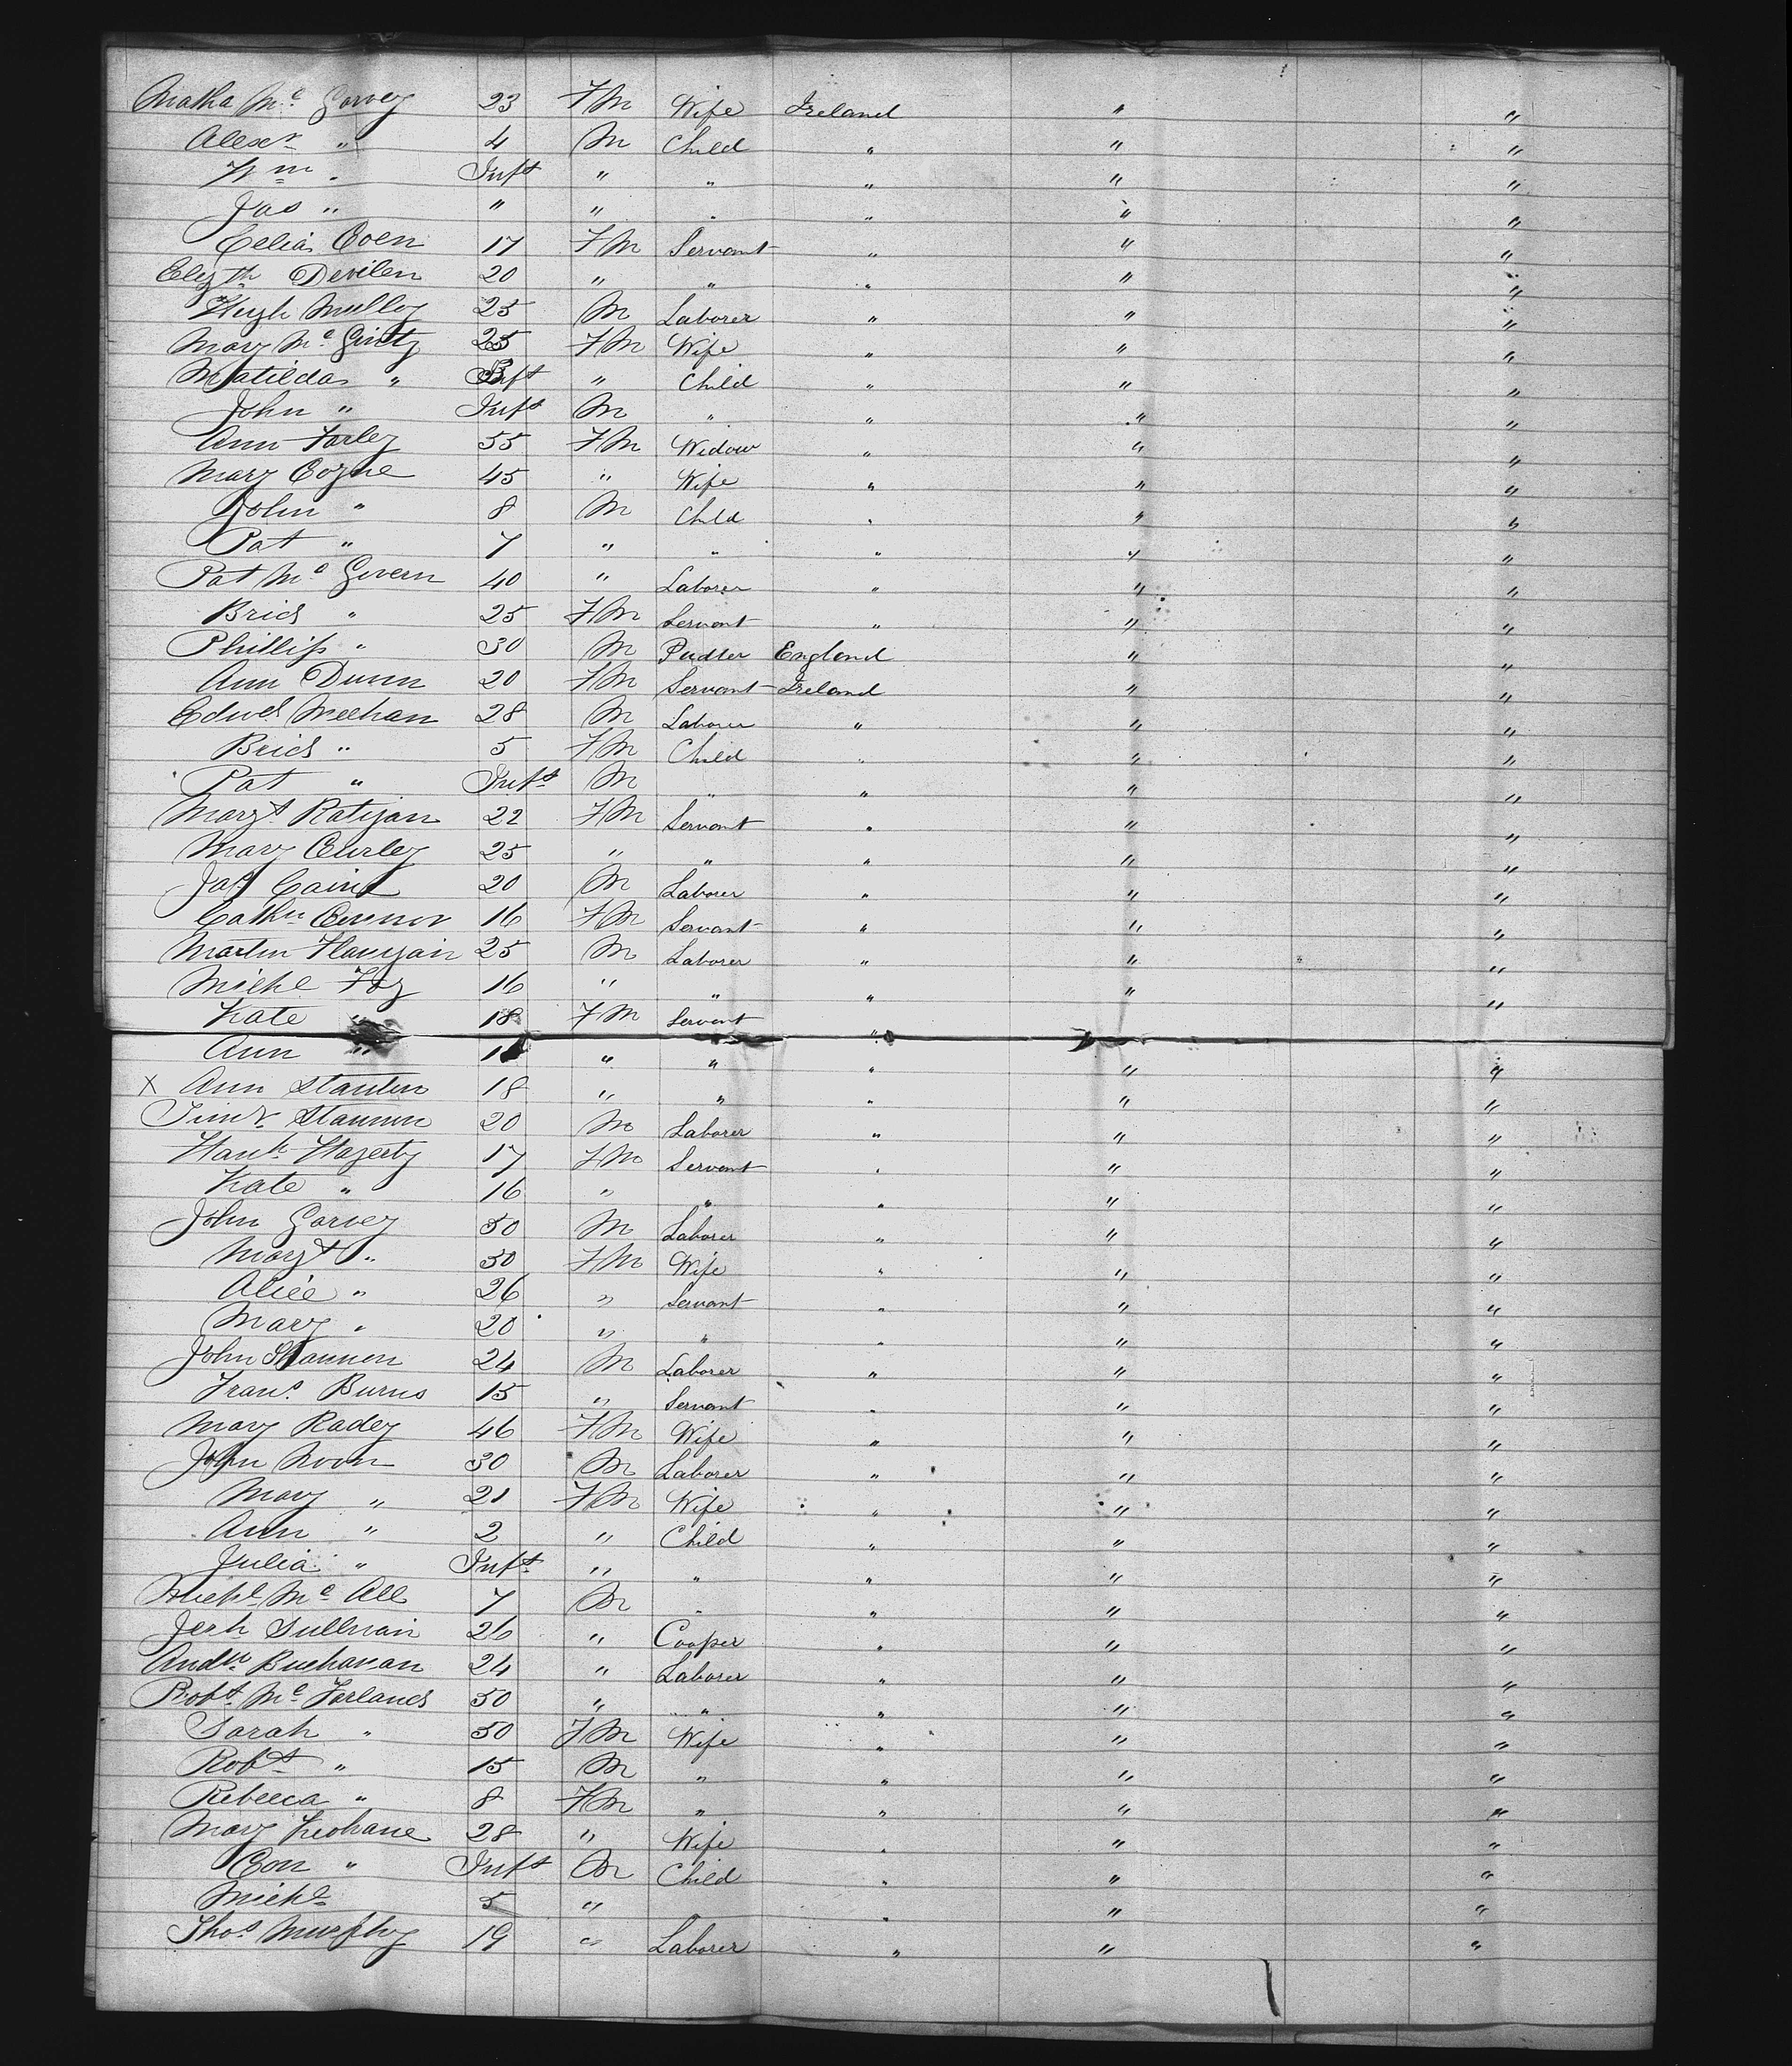 Martha Mc Garvey 23 FM Wife Ireland " "
Alexr " 4 M Child " " "
Wm " Inft " " " " "
Jas " " " " " " "
Celia Coen 17 FM Servant " " "
Elizth Devilen 20 " " " " "
Hugh Mulloy 25 M Laborer " " "
Mary Mc Ginty 25 FM Wife " " "
Matilda " " Child " " "
John " Inft M " " " "
Ann Farley 55 FM Widow " " "
Mary Coyne 45 " Wife " " "
John " 8 M Child " " "
Pat " 7 " " " " "
Pat Mc Govern 40 " Laborer " " "
Brid " 25 FM Servant " " "
Phillip " 30 M Pudler England " "
Ann Dunn 20 FM Servant Ireland " "
Edwd Meehan 28 M Laborer " " "
Brid " 5 FM Child " " "
Pat " Inft M " " " "
Margt Ratigan 22 FM Servant " " "
Mary Curley 25 " " " " "
Jas 20 M Laborer " " "
Cathn Connor 16 FM Servant " " "
Martin Flanigain 25 M Laborer " " "
Michl Foy 16 " " " " "
Kate " 18 FM Servant " " "
Ann " " " " " "
X Ann Stanten 18 " " " " "
Timy 20 M Laborer " " "
Hanh Hagerty 17 FM Servant " " "
Kate " 16 " " " " "
John Garvey 50 M Laborer " " "
Margt " 50 FM Wife " " "
Alice " 26 " Servant " " "
Mary " 20 " " " " "
John Shannon 24 M Laborer " " "
Frans Burns 15 " Servant " " "
Mary Radey 46 FM Wife " " "
John Noon 30 M Laborer " " "
Mary " 21 FM Wife " " "
Ann " 2 " Child " " "
Julia " Inft " " " " "
Michl Mc All 7 M " " " "
Jerh Sullivain 26 " Cooper " " "
Andw Buchanan 24 " Laborer " " "
Robt Mc Farland 50 " " " " "
Sarah " 50 FM Wife " " "
Robt " 15 M " " " "
Rebecca " 8 FM " " " "
Mary Keohane 28 " Wife " " "
Con " Inft M Child " " "
Michl 5 " " " "
Thos Murphy 19 " Laborer " " "